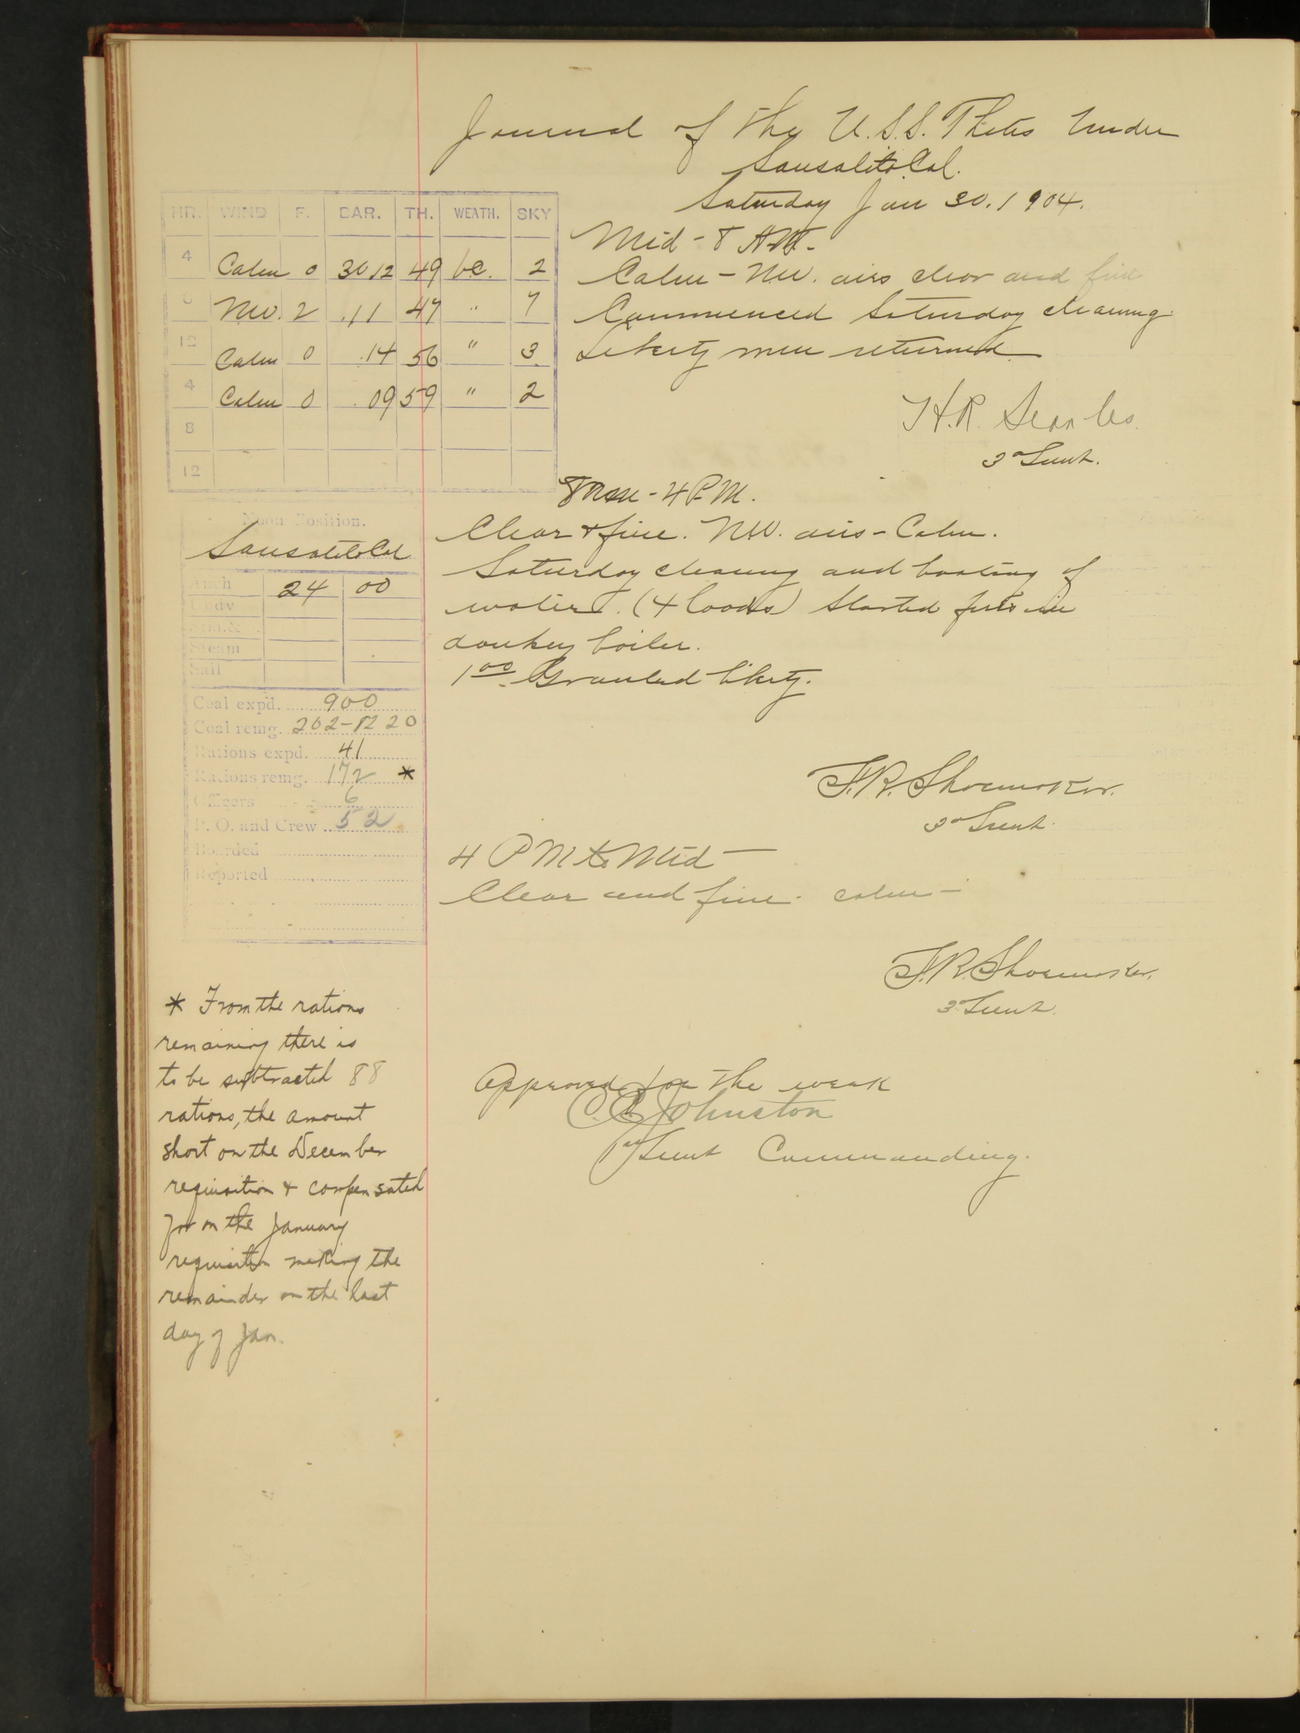 Journal of the U.S.S. Thetis Under
Sausalito Cal.
Saturday Jan 30. 1904.
HR. WIND F. BAR. TH. WEATH. SKY
4 Calm 0 30 12 49 bc. 2
8 NW. 2 .11 47 " 7
12 Calm 0 .14 56 " 3
4 Calm 0 .09 59 " 2
8
12
Mid - 8 AM.-
Calm - NW. airs clear and fine
Commenced Saturday cleaning.
Liberty men returned
H.R. Searles.
3d Lieut.
Noon Position.
Sausalito Cal
Anch 24 00
Undw
Stm.&
Steam
Sail
Coal expd. 900
Coal remg. 202-1220
Rations expd. 41
Rations remg. 172 *
Officers 6
P. O. and Crew 52
Boarded
Reported
- 4 P.M.
Clear & fine. NW. airs - Calm.
Saturday cleaning and boating of
water. (4 loads) Started fires in
donkey boiler.
1 00 Granted liberty.
F.R. Shoemaker.
3d Lieut.
4 PM to Mid -
Clear and fine. calm -
F.R. Shoemaker.
3 Lieut.
Approved for the week
C.E. Johnston
1st Lieut Commanding.
* From the rations
remaining there is
to be subtracted 88
rations, the amount
short on the December
requisition & compensated
for on the January
requisition making the
remainder on the last
day of Jan.